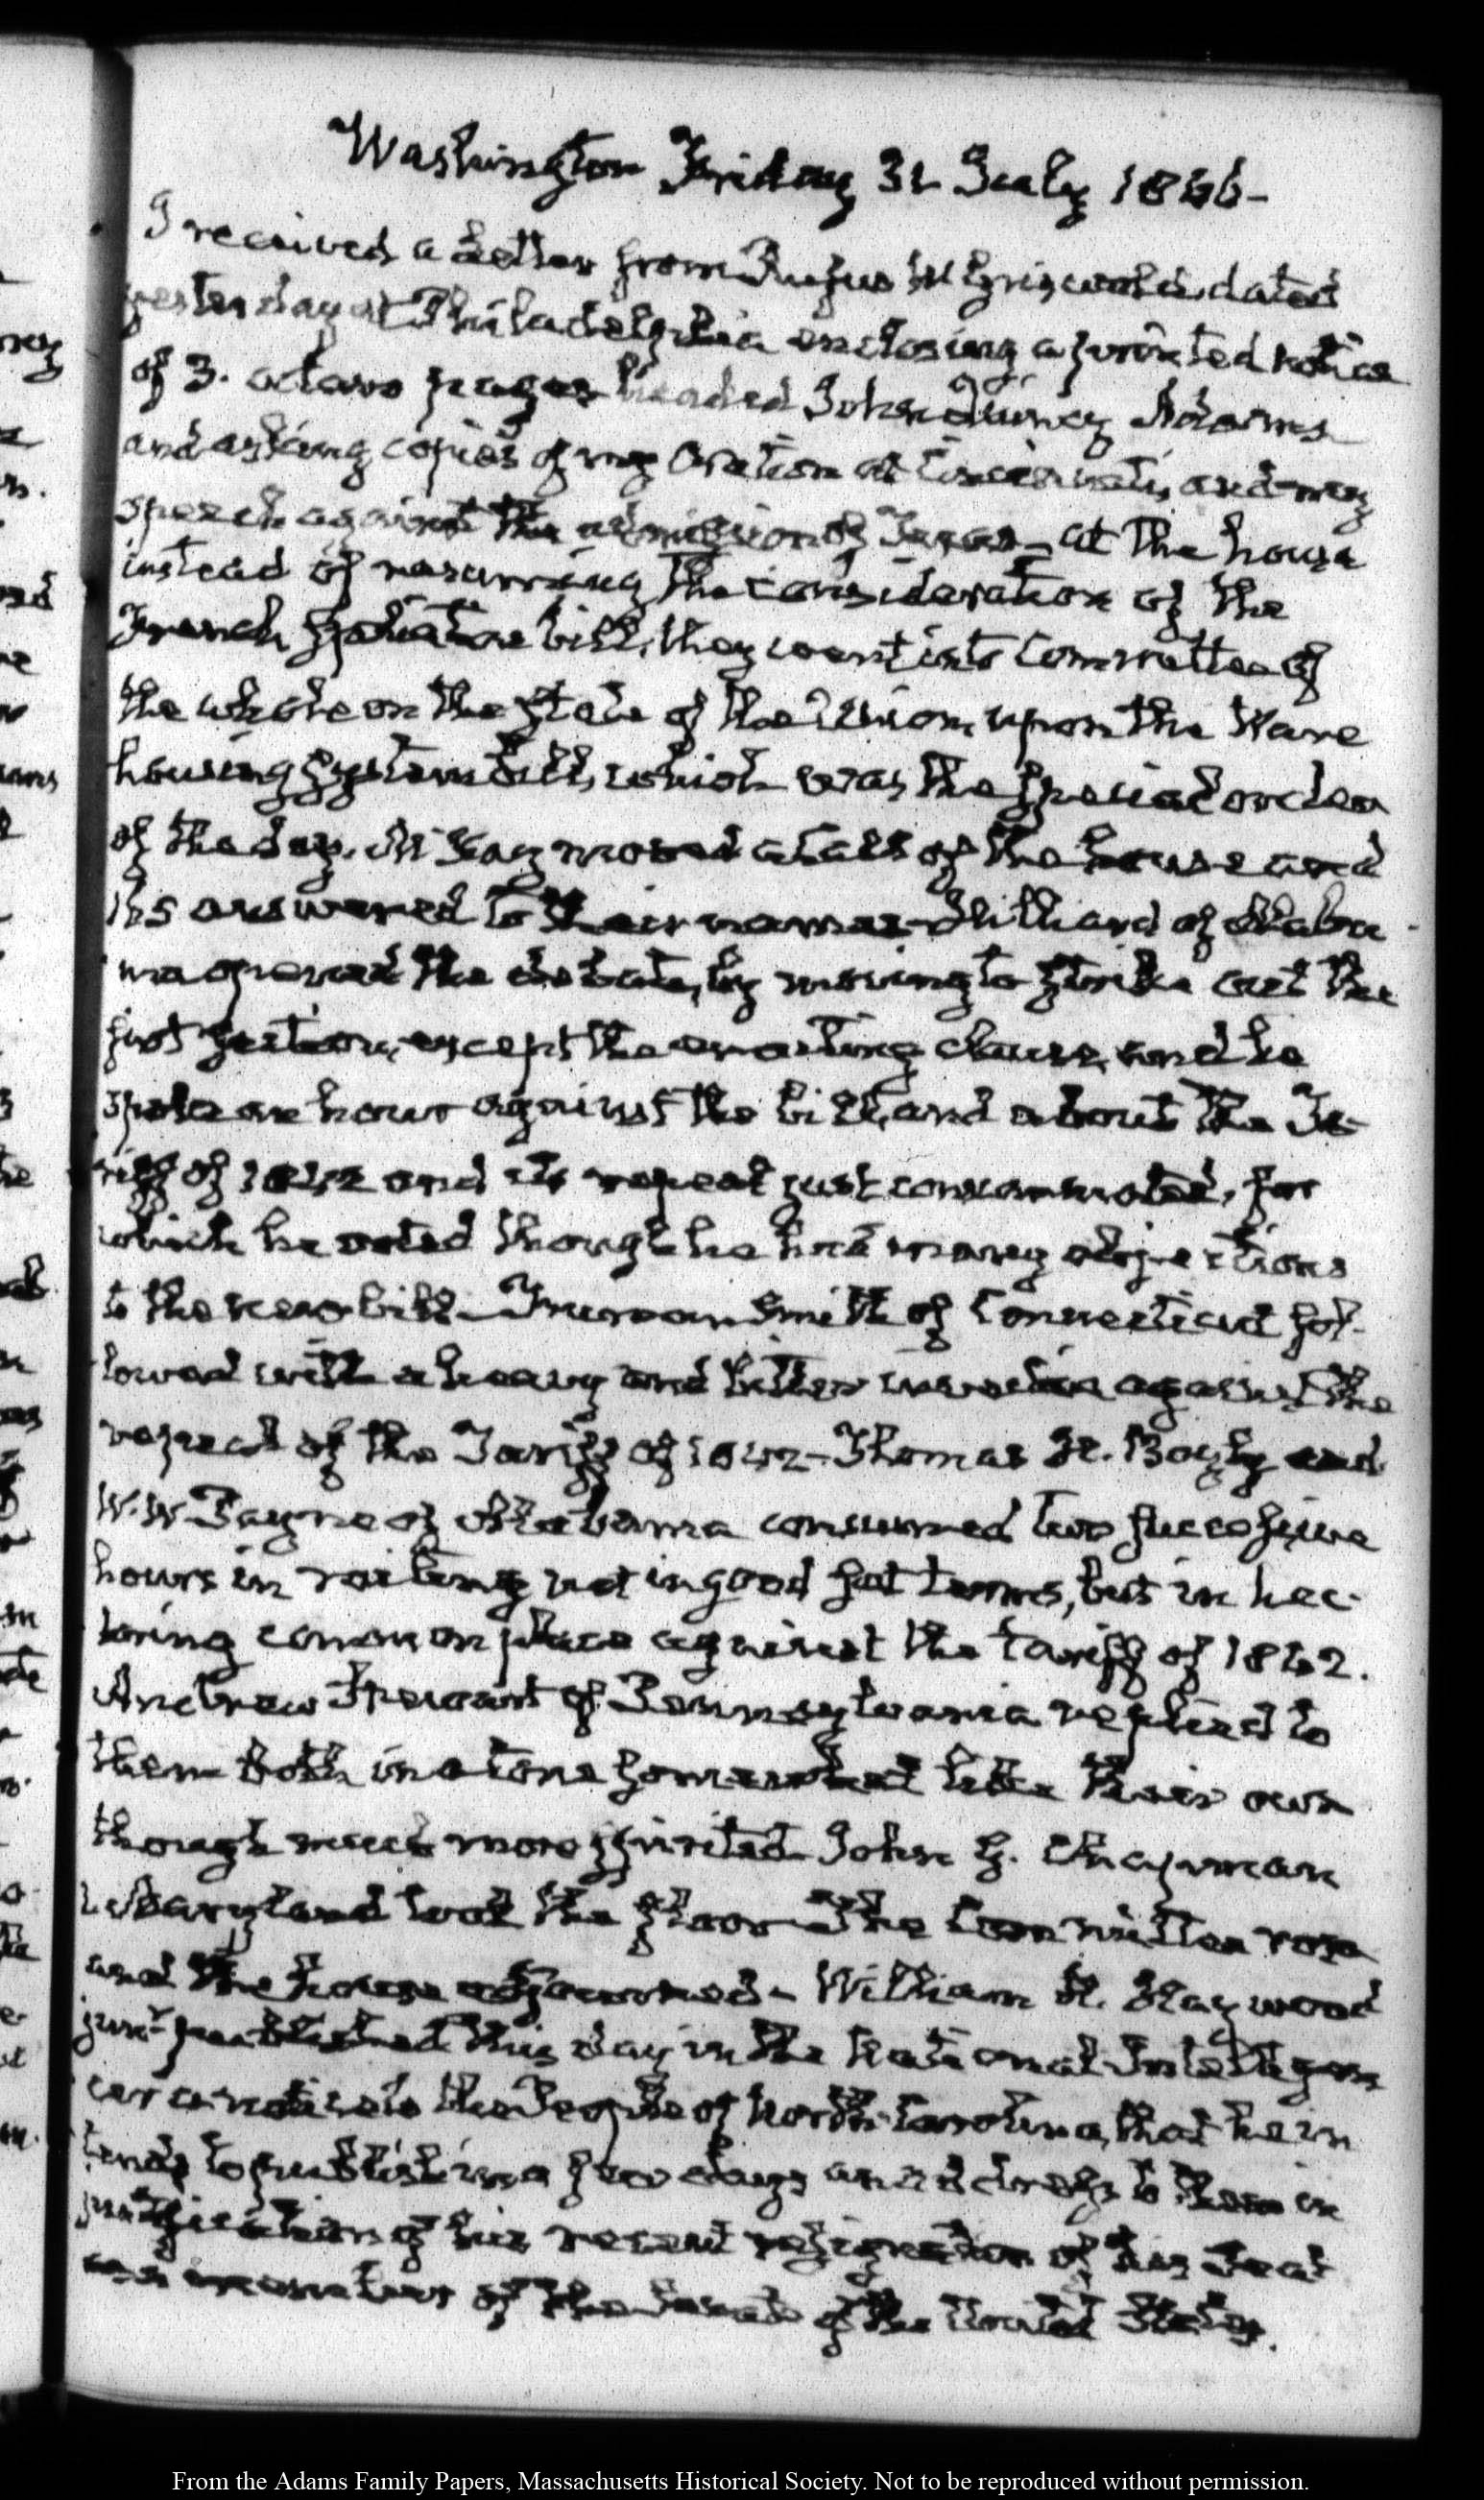 Washington Friday 31 July 1846-
I received a letter from Rufus W Griswold, dated
yesterday at Philadelphia enclosing a printed notice
of 3. octavo pages headed John Quincy Adams
and asking copies of my Oration at Cincinnati, and my
speech against the admission of Texas- at the house
instead of resuming the consideration of the
French Spoliation bill, they went into Committee of
the whole on the state of the Union, upon the Ware
housing system bill, which was the special order
of the day. Mr moved a call of the house and
165 answered to their names- Hilliard of Alaba
ma opened the debate, by moving to strike out the
first section, except the enacting clause, and he
spoke an hour against the bill, and about the Ta-
riff of 1842 and its repeal just consummated, for
which he voted though he had many objections
to the new bill- Truman Smith of Connecticut fol-
lowed with a heavy and bitter invective against the
repeal of the Tariff of 1842- Thomas H. Bayly and
W. W Payne of Alabama consumed two successive
hours in railing not in good set terms, but in hec-
toring common place against the tariff of 1842.
Andrew Stewart of Pennsylvania replied to
them both in a tone somewhat like their own
though much more spirited- John G. Chapman
Maryland took the floor- The Committee rose
and the house adjourned- William H. Haywood
junr. published this day in the National Intelligen
cer a notice to the People of North-Carolina, that he in
tends to publish in a few days an address to them in
justification of his recent resignation of his Seat
as a member of the Senate of the United States.